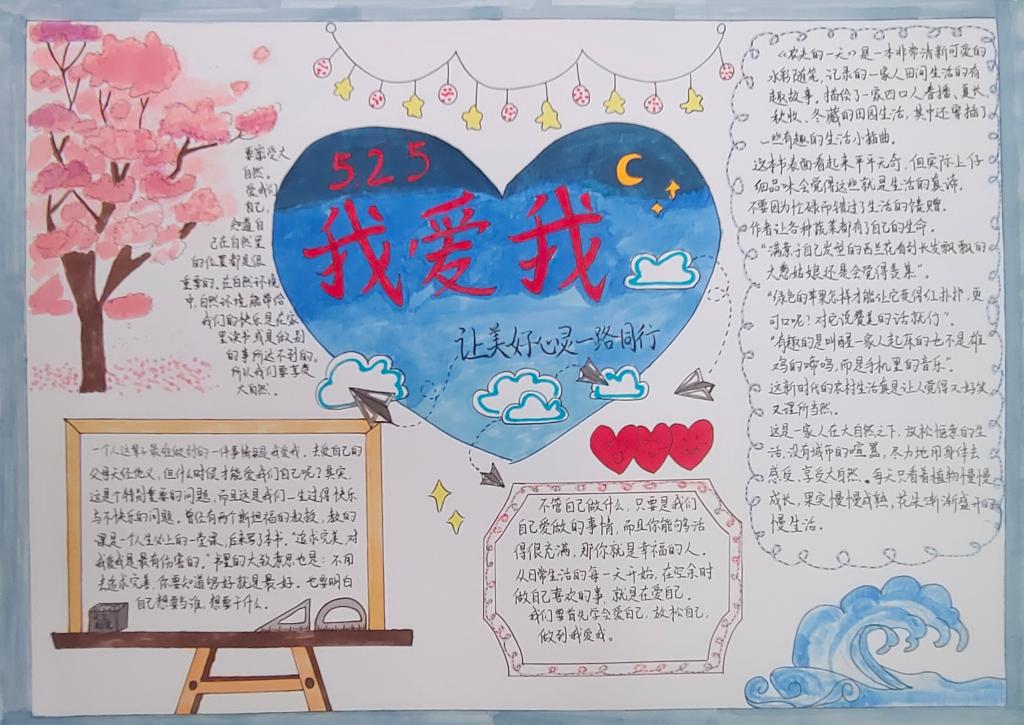 525
我爱我
让美好心灵一路同行
要享受大
自然。
爱我们
自己,
知道自
己在自然里
的位置都是很
重要的。在自然环境
中,自然环境能带给
我们的快乐是在家
里读书或是做别
的事所达不到的。
所以我们要享受
大自然。
一个人这辈子最难做到的一件事情就是我爱我。去爱自己的
父母天经地义,但什么时候才能爱我们自己呢?其实,
这是个特别重要的问题,而且这是我们一生过得快乐
与不快乐的问题。曾经有两个斯坦福的教授,教的
课是个人生必上的一堂课,后来写了本书。"追求完美,对
我爱我是最有伤害的。"书里的大致意思也是:不用
去追求完善,你要知道够好就是最好。也要明白
自己想要当谁,想要干什么。
不管自己做什么,只要是我们
自己爱做的事情,而且你能够活
得很充满,那你就是幸福的人。
从日常生活的每一天开始,在空余时
做自己喜欢的事,就是在爱自己。
我们要首先学会爱自己,放松自己,
做到我爱我。
《农夫的一天》是一本非常清新可爱的
水彩随笔,记录的一家人田间生活的有
趣故事。描绘了一家四口人春播、夏长
秋收、冬藏的田园生活,其中还穿插了
一些有趣的生活小插曲。
这本书表面看起来平平无奇,但实际上仔
细品味会觉得这些就是生活的真谛。
不要因为忙碌而错过了生活的馈赠。
作者让各种蔬菜都有了自己的生命。
"满意于自己发型的西兰花看到长发飘飘的
大葱姑娘还是会觉得羡慕"。
"绿色的苹果怎样才能让它变得红扑扑,更
可口呢?对它说赞美的话就行"。
"有趣的是叫醒一家人起床的也不是雄
鸡的啼鸣,而是手机里的音乐"。
这新时代的农村生活真是让人觉得又好笑
又理所当然。
这是一家人在大自然之下,放松惬意的生
活,没有城市的喧嚣,尽力地用身体去
感受,享受大自然。每天只看着植物慢慢
成长,果实慢慢成熟,花朵渐渐盛开的
慢生活。